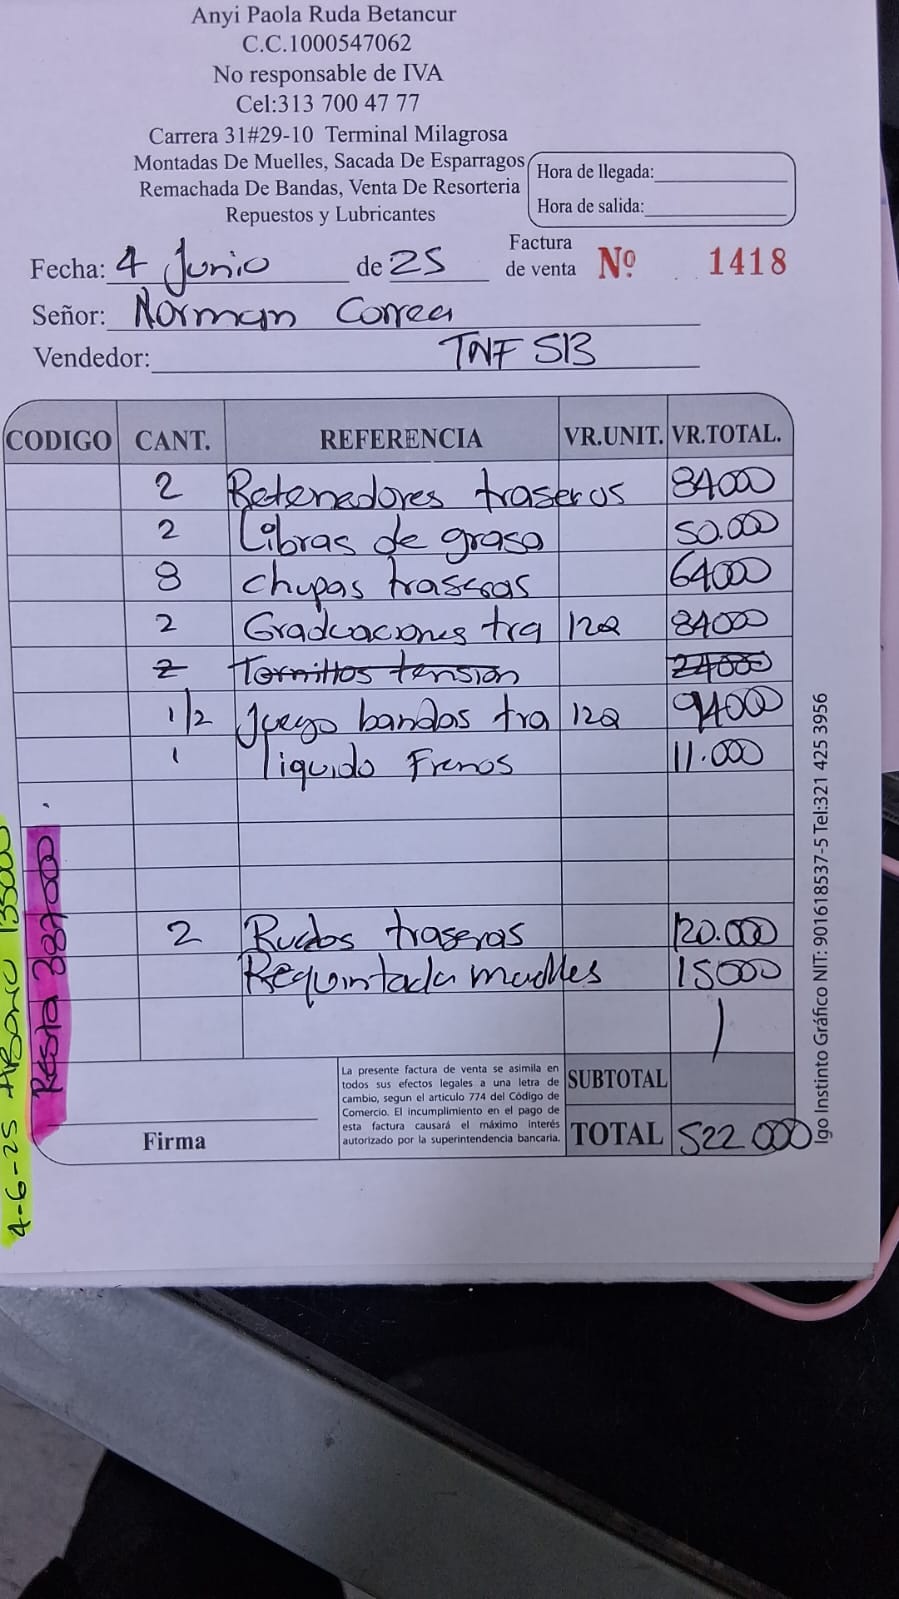 Anyi Paola Ruda Betancur
C.C.1000547062
No responsable de IVA
Cel:313 700 47 77
Carrera 31#29-10 Terminal Milagrosa
Montadas De Muelles, Sacada De Esparragos
Remachada De Bandas, Venta De Resorteria
Repuestos y Lubricantes
Hora de llegada:
Hora de salida:
Fecha: 4 Junio de 25
Factura de venta Nº 1418
Señor: Norman Correa
Vendedor: TNF 513
CODIGO CANT. REFERENCIA VR.UNIT. VR.TOTAL.
2 Retenedores traseros 84000
2 Libras de grasa 50.000
8 chupas traseras 64000
2 Graduaciones tra 12Q 84000
2 Tornillos tension 24000
1/2 Juego bandas tra 12Q 94000
1 liquido Frenos 11.000
2 Ruedas traseras 120.000
Requintada muelles 15000
La presente factura de venta se asimila en
todos sus efectos legales a una letra de
cambio, segun el articulo 774 del Código de
Comercio. El incumplimiento en el pago de
esta factura causará el máximo interés
autorizado por la superintendencia bancaria.
SUBTOTAL
TOTAL 522 000
Firma
4-6-25 Abono 135000
Resta 387000
Igo Instinto Gráfico NIT: 901618537-5 Tel:321 425 3956